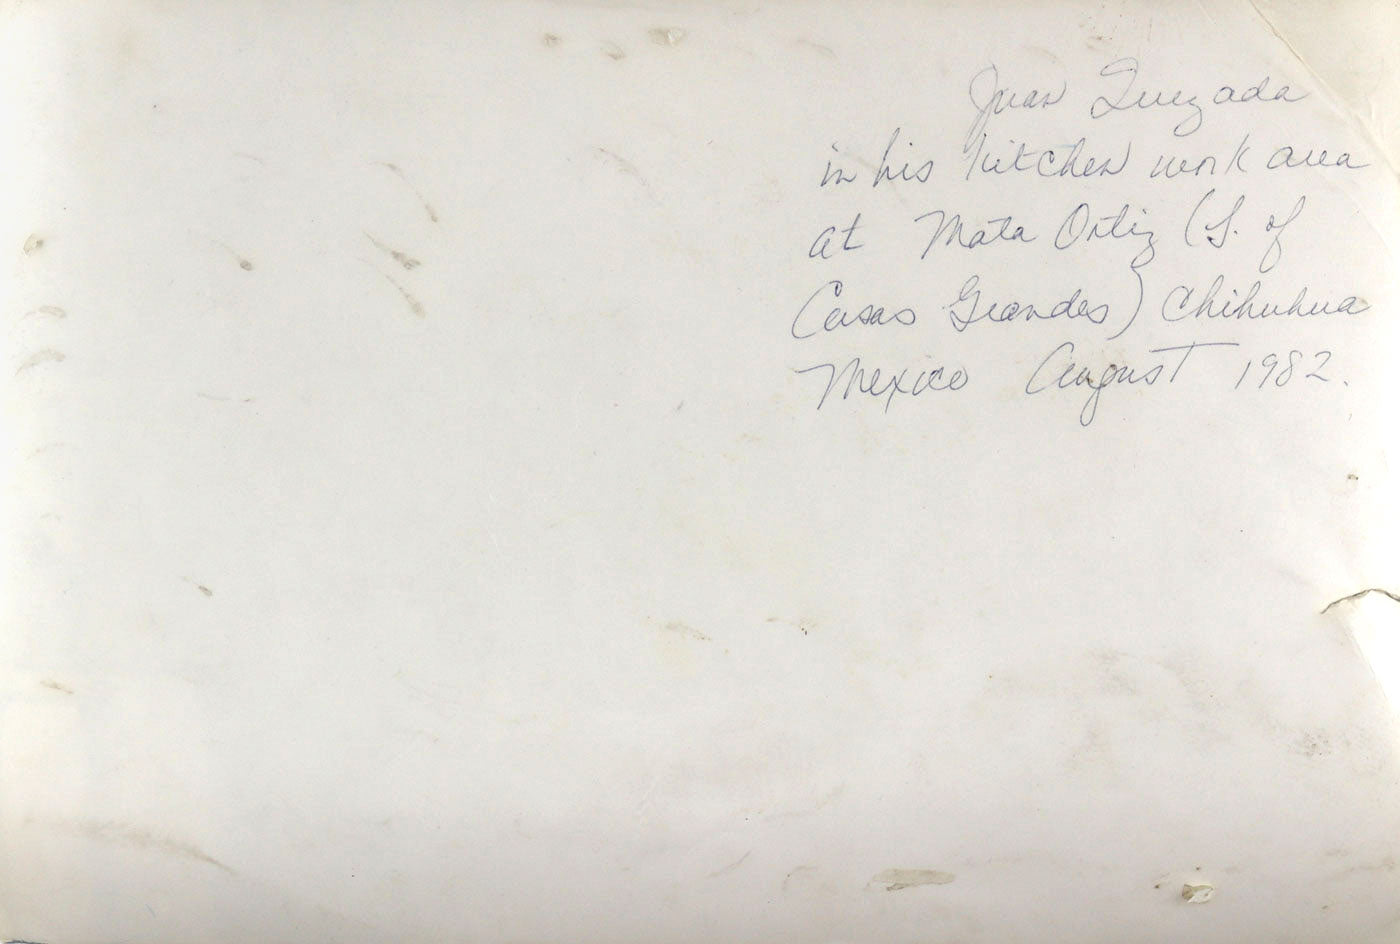 Juan Quezada
in his kitchen work area
at Mata Ortiz (S. of
Casas Grandes) Chihuhua
Mexico August 1982.